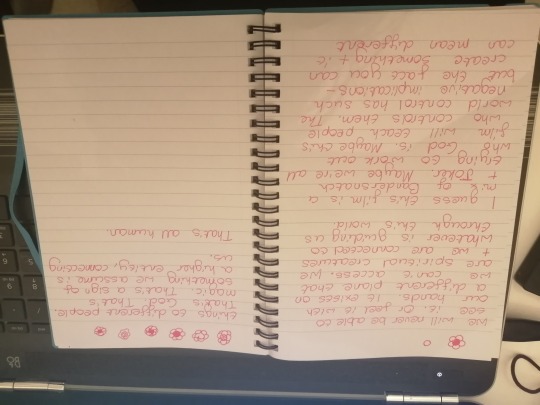 we will never be able to
see it. Or feel it with
our hands. It exists on
a different plane that
we can't access. We
are spiritual creatures
+ we are connected to
whatever is guiding us
through this world.
I guess this film is a
mix of Bandersnatch
+ Joker. Maybe we're all
trying to work out
who God is. Maybe this
film will teach people
who controls them. The
world control has such
negative implications -
but the fact you can
create something + it
can mean different
things to different people.
That's God. That's
magic. That's a sign of
something we assume is
a higher entity, connecting
us.
That's all human.